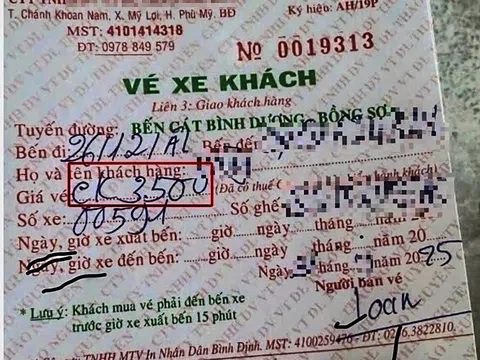 T. Chánh Khoan Nam, X. Mỹ Lợi, H. Phù Mỹ, BĐ
Ký hiệu: AH/19P
MST: 4101414318
ĐT: 0978 849 579
Nº 0019313
VÉ XE KHÁCH
Liên 3: Giao khách hàng
Tuyến đường: BẾN CÁT BÌNH DƯƠNG - BỒNG SƠ
Bến đi: 26/12/AL Bến đến
Họ và tên khách hàng:
Giá vé: CK 350U (Đã có thuế hành khách)
Số xe: 00591 Số ghế
Ngày, giờ xe xuất bến: giờ ngày tháng năm 20
Ngày, giờ xe đến bến: giờ ngày tháng năm 20
Ngày tháng năm 2025
Người bán vé
Loan
* Lưu ý: Khách mua vé phải đến bến xe
trước giờ xe xuất bến 15 phút
TNHH MTV In Nhân Dân Bình Định. MST: 4100259476 - ĐT: 0256.3822810.